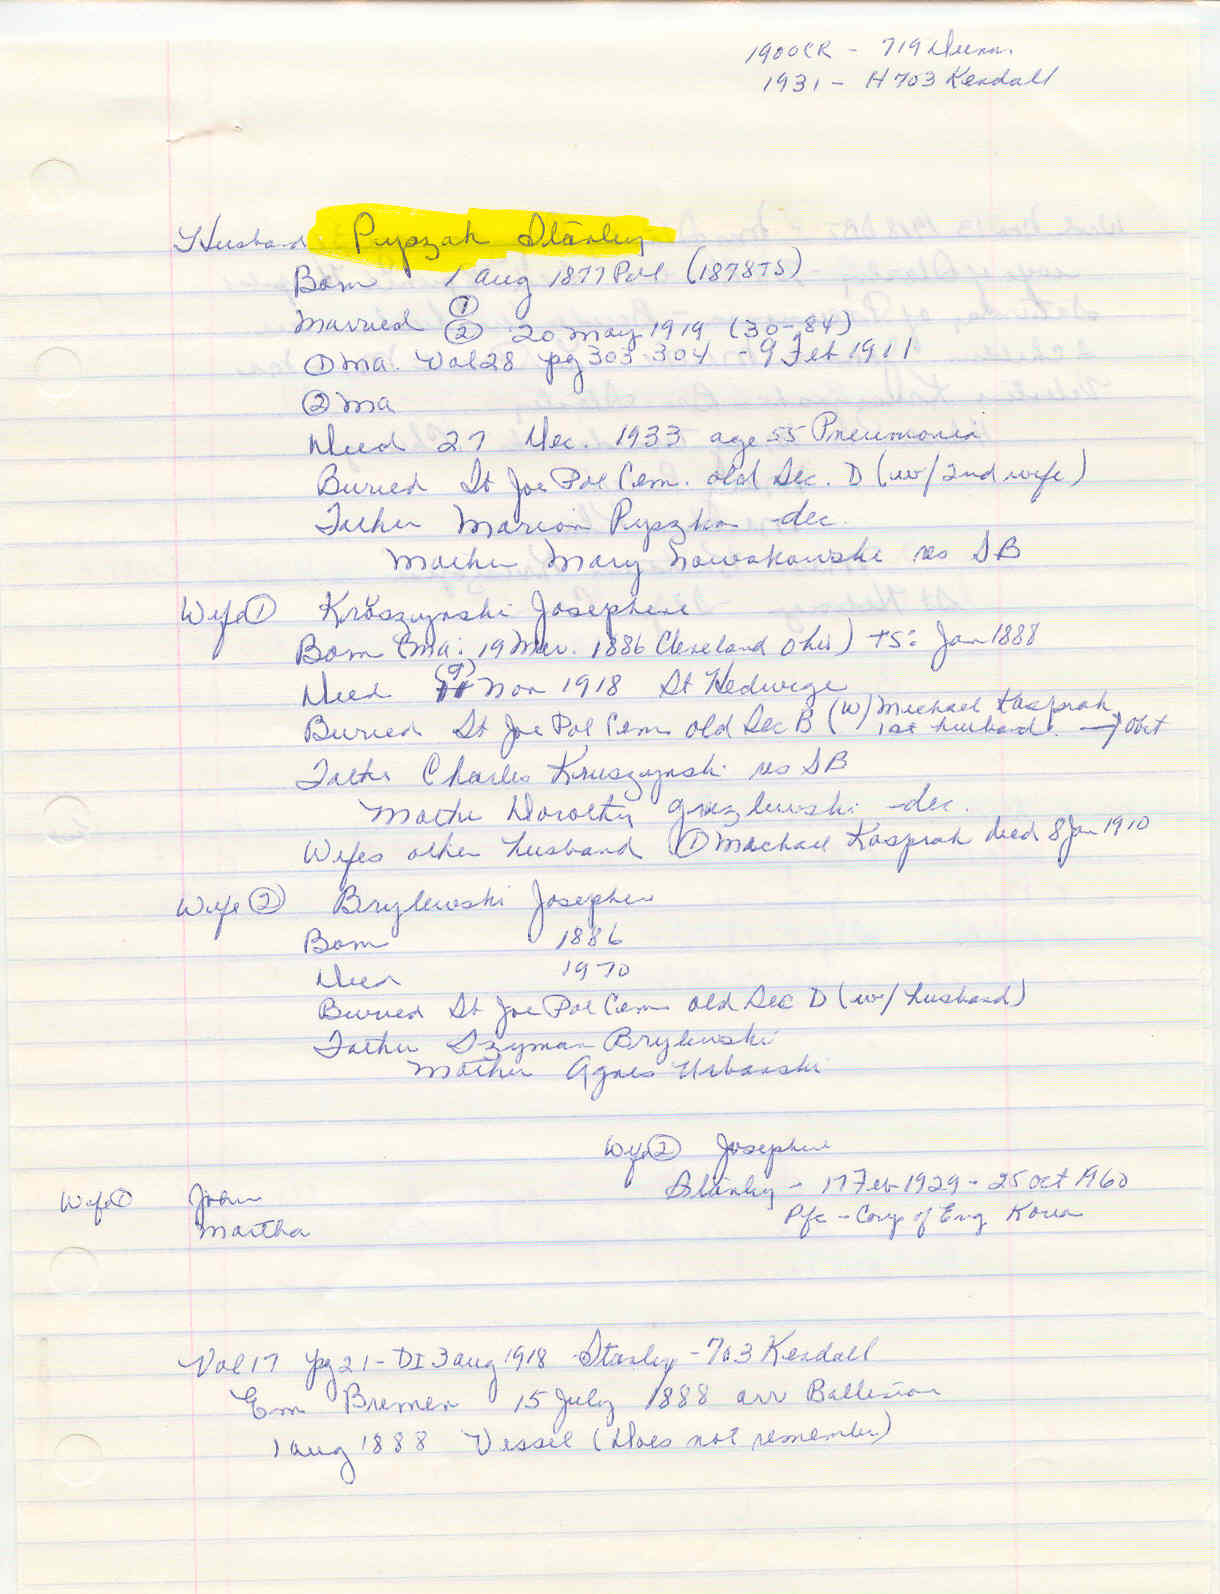 1900CR - 719 Dunn.
1931 - H 703 Kendall
Husband Pyszak Stanley
Born 1 Aug 1877 Pol (1878TS)
①
Married ② 20 May 1919 (30-84)
① Ma. Vol 28 pg 303-304 - 9 Feb 1911
② Ma
Died 27 Dec. 1933 age 55 Pneumonia
Buried St Joe Pol Cem. old Sec. D (w/ 2nd wife)
Father Marion -dec.
Mother Mary Nowakowski res SB
Wife ① Kruszynski Josephine
Born (Ma: 19 Mar. 1886 Cleveland Ohio) TS: Jan 1888
(9)
Died Nov 1918 St Hedwige
Buried St Joe Pol Cem old Sec B (w/ Michael Kasprak
1st husband. → Obit
Father Charles Kruszynski res SB
Mother Dorothy -dec.
Wifes other husband ① Machael Kasprak died 8 Jan 1910
Wife ② Brylewski Josephen
Born 1886
Died 1970
Buried St Joe Pol Cem old Sec D (w/ husband)
Father Szyman Brylewski
Mother Agnes Urbanski
Wife ② Josephine
Stanley - 17 Feb 1929 - 25 Oct 1960
Pfc - Corp of Eng Korea
Wife ① John
Martha
Vol 17 pg 21 - DI 3 Aug 1918 Stanley - 703 Kendall
Em Bremen 15 July 1888 arr Baltimore
1 Aug 1888 Vessel (Does not remember)